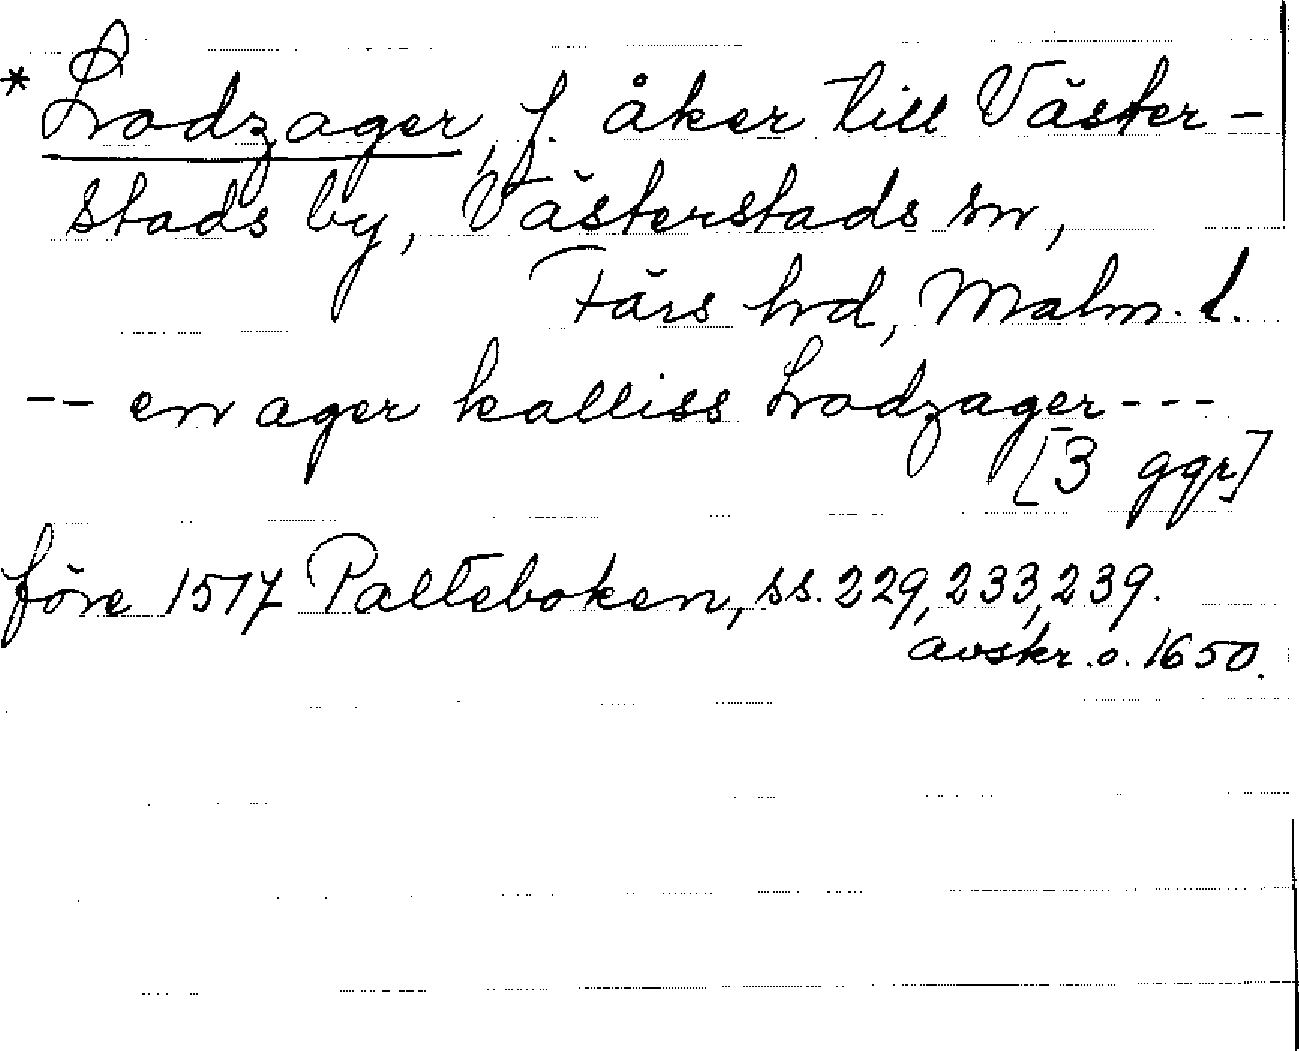 * Lrodzager, f. åker till Väster-
stads by, Västerstads sn,
Färs hrd, Malm. l.
-- en ager kalliss Lrodzager---
[3 ggr]
före 1517 Palteboken, ss. 229, 233, 239.
avskr. o. 1650.